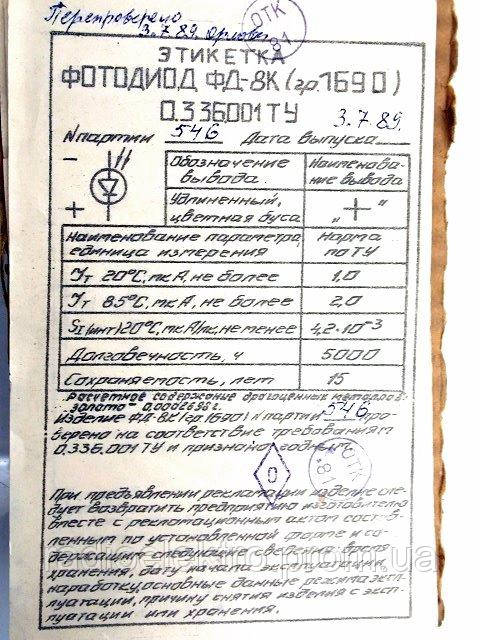 Перепроверено
3.7.89. Орлова
ОТК
81
ЭТИКЕТКА
ФОТОДИОД ФД-8К (гр.1690)
0.336.001 ТУ
N партии 546 Дата выпуска 3.7.89.
Обозначение вывода
Наименова-
ние вывода
Удлиненный,
цветная буса
„+"
Наименование параметра,
единица измерения
Норма
по ТУ
Iт 20°С, мкА, не более 1,0
Iт 85°С, мкА, не более 2,0
SI(инт) 20°С, мкА/лк, не менее 4,2·10⁻³
Долговечность, ч 5000
Сохраняемость, лет 15
Расчетное содержание драгоценных металлов:
золото - 0,0002696 г.
Изделие ФД-8К (гр.1690) N партии 546 про-
верено на соответствие требованиям
0.336.001 ТУ и признано годным
0
ОТК
81
При предъявлении рекламации изделие сле-
дует возвратить предприятию изготовителю
вместе с рекламационным актом состав-
ленным по установленной форме и со-
держащим следующие сведения: время
хранения, дату начала эксплуатации,
наработку, основные данные режима экспл-
уатации, причину снятия изделия с экспл-
уатации или хранения.